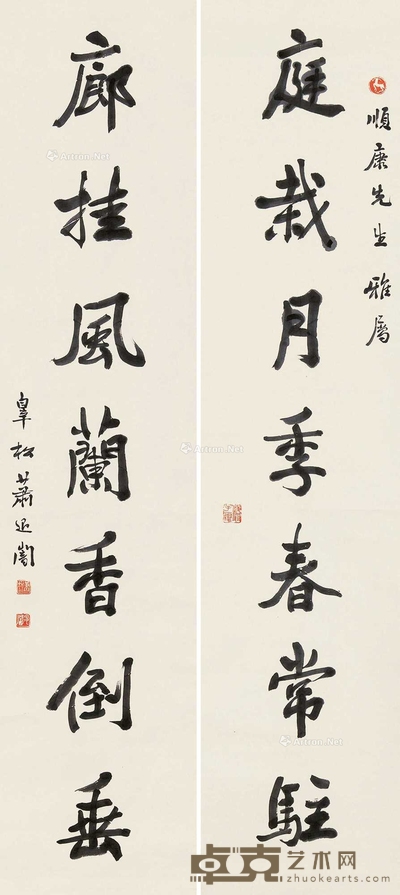 順康先生雅屬
庭栽月季春常駐
廊挂風蘭香倒垂
皋松蕭退闇
Artron.Net
卓克艺术网
www.zhuokearts.com